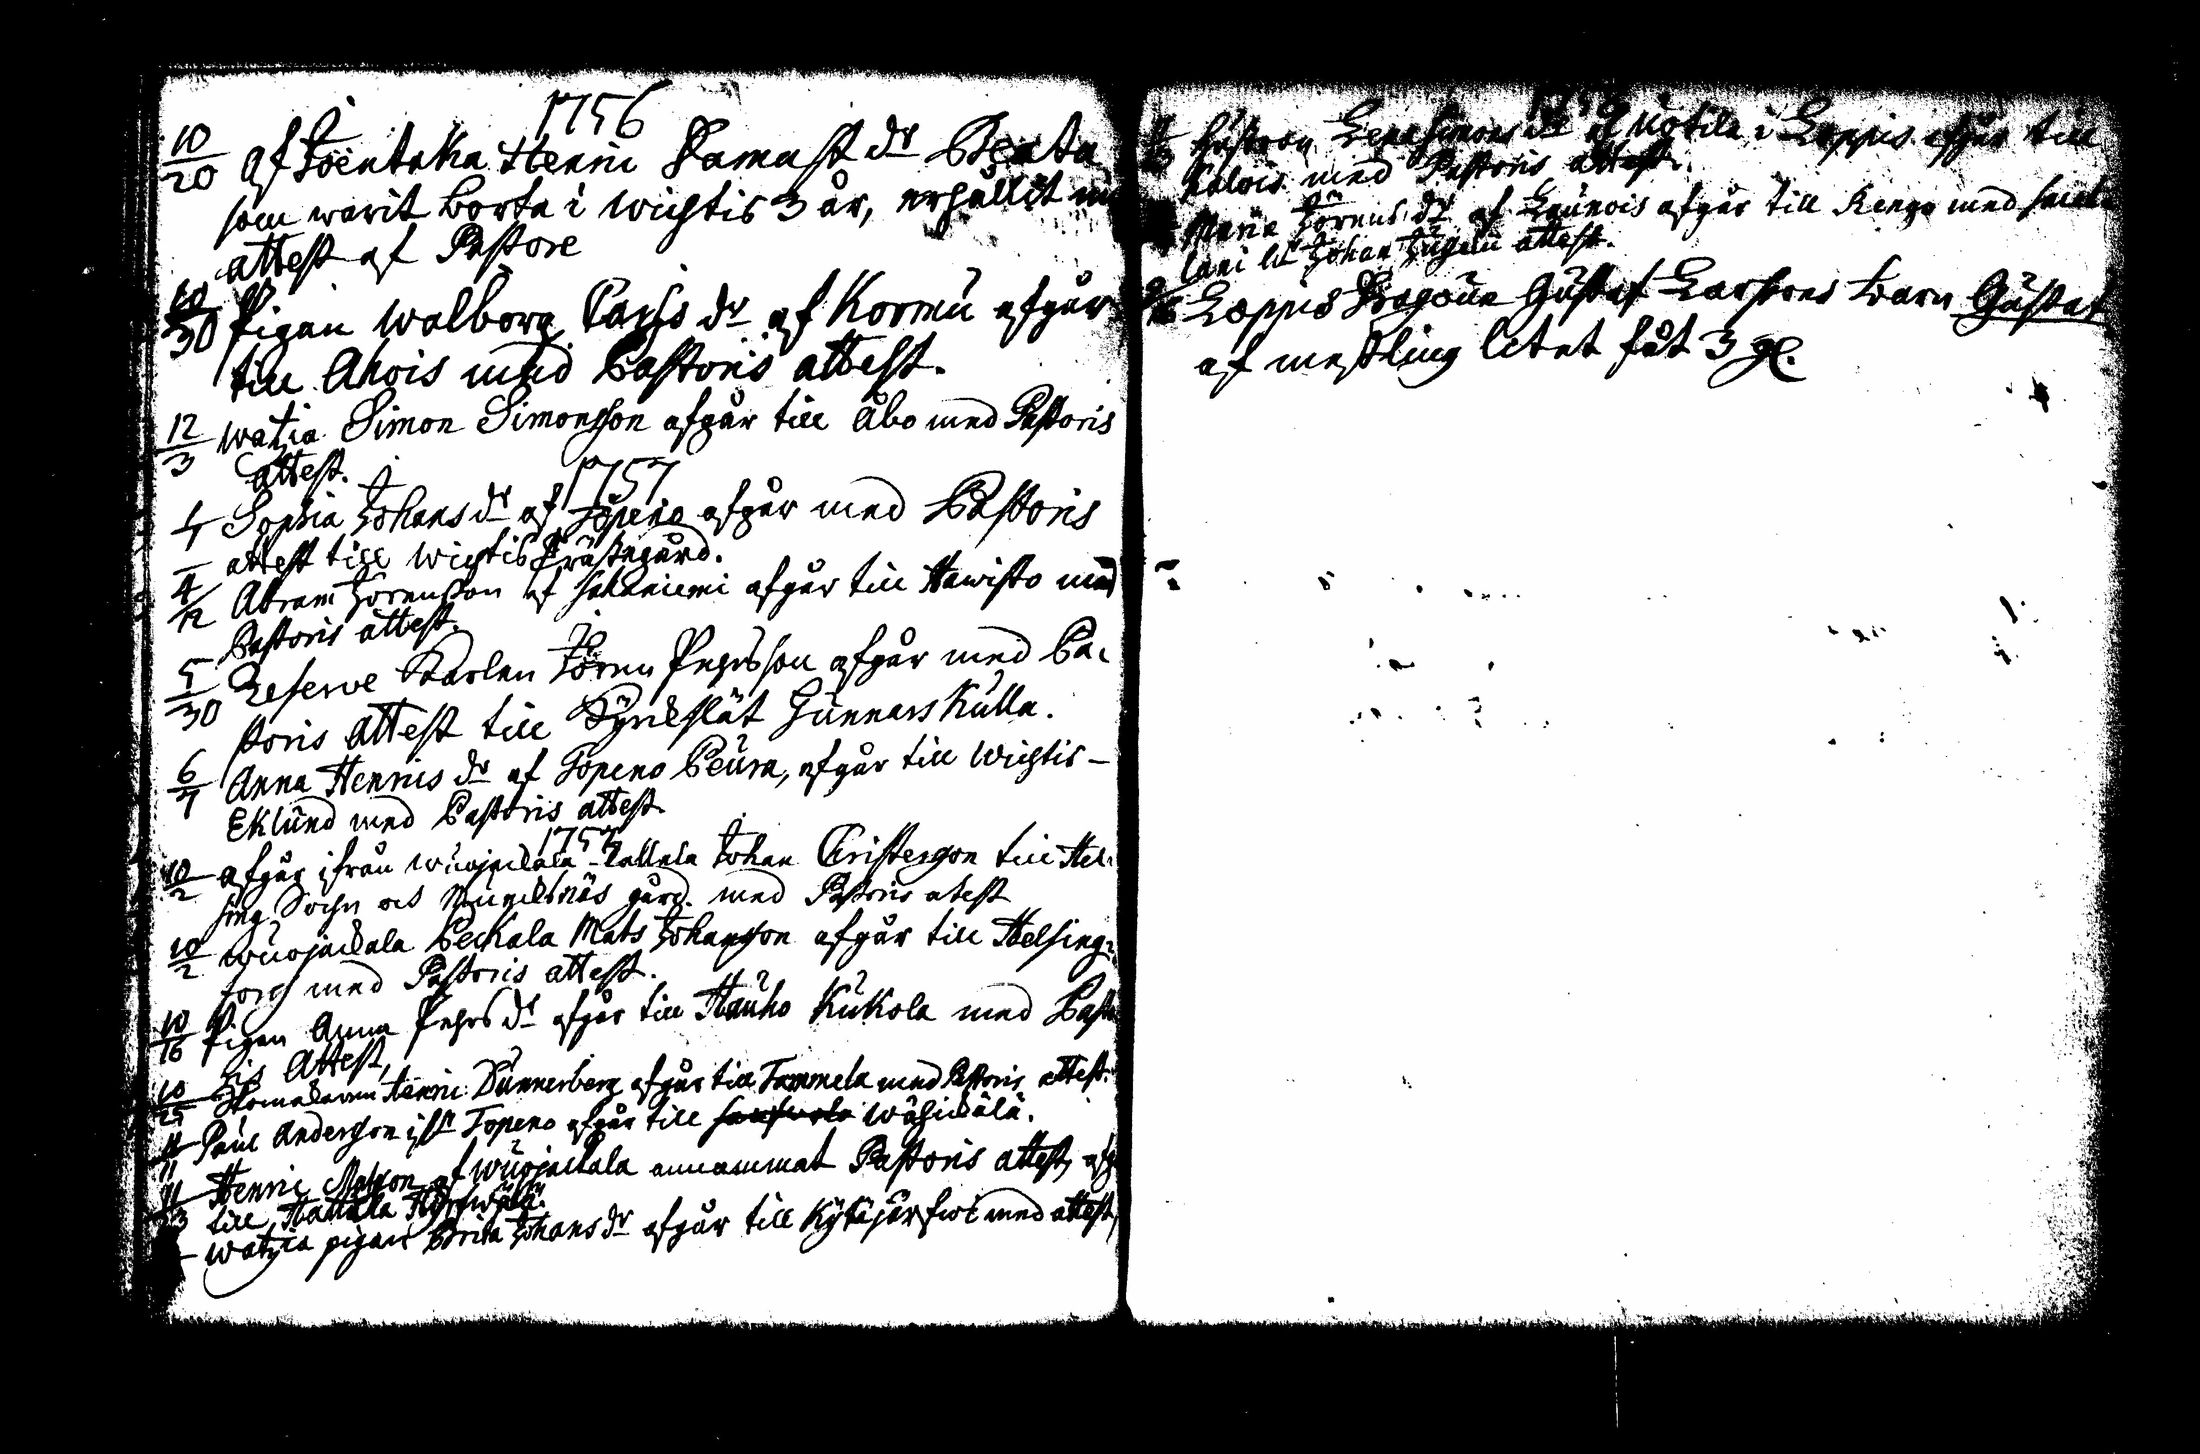 1756
10/20 af Joentaka Henric Damast dr Beata
som warit borta i wichtis 3 år, erhållit nu
attest af Pastore
10/30 Pigan Walborg Carls dr af Kormu afgår
till Ahois med Pastoris attest.
12/3 Watzia Simon Simonsson afgår till Åbo med Pastoris
attest.
1757
Sophia Johans dr af Topeno afgår med Pastoris
attest till Wichtis Prästegård.
4/12 Abram Jöransson af Sakaniemi afgår till Hawisto med
Pastoris attest.
5/30 Reserve Karlen Jören Pehrsson afgår med Pa-
storis attest till Kyrckslät Gunnarskulla.
6/7 Anna Henrics dr af Topeno Peura, afgår till Wichtis-
Eklund med Pastoris attest.
1757
10/2 afgår ifrån Wuojackala Johan Christersson till Hel-
sing Sochn och Muncksnäs gård med Pastoris atest
10/2 Wuojackala Peckala Mats Johansson afgår till Helsing-
fors med Pastoris attest.
10/16 Pigan Anna Pehrs dr afgår till Hauho Kukola med Pasto
ris Attest,
10/25 Skomakaren Henric Dunnerberg afgår till Tammela med Pastoris attest.
11 Paul Andersson Topeno afgår till Wähickälä.
11 Henric Matsson af Wuojackala anammat Pastoris attest, afg
till Hattula
Watzia pigan Brita Johans dr afgår till Kytäjärfwi med attest,
Lena Simons dr af Uotila i Loppis afgår till
Kalois med Pastoris attest.
Maria Jörens dr af Launois afgår till Renga med
Johan attest.
Loppis Dragoun Gustaf Larssons barn Gustaf
af meßling letat fåt 3 gl.